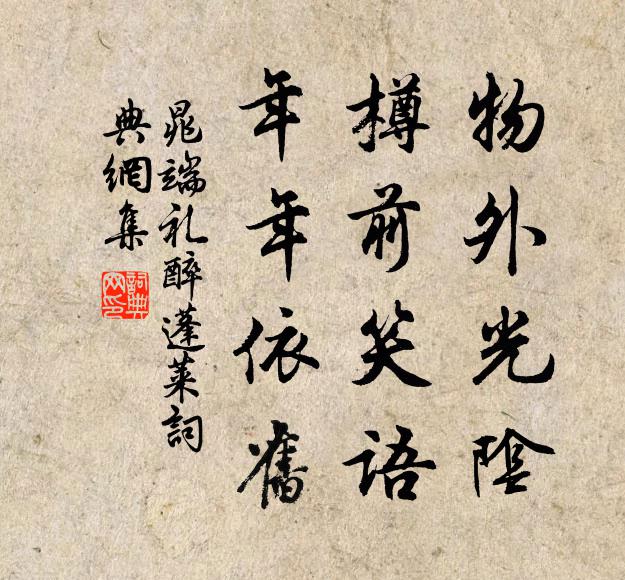 物外光陰
樽前笑語
年年依舊
晁端礼醉蓬萊詞
典網集
詞典網印